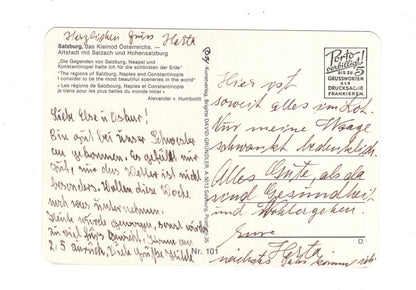 Herzlichen Gruss Herta
Salzburg, das Kleinod Österreichs.
Altstadt mit Salzach und Hohensalzburg
„Die Gegenden von Salzburg, Neapel und
Konstantinopel halte ich für die schönsten der Erde"
"The regions of Salzburg, Naples and Constantinople
I consider to be the most beautiful in the world"
« Les régions de Salzburg, Naples et Constantinople
je tiens pour les plus belles du monde entier »
Alexander v. Humboldt
Liebe Else u. Oskar!
Bin gut bei unse Schwester
an gekommen. Es gefällt mir
gut, nur das Wetter ist nicht
besonders. Wollen diese Woche
noch was unternehmen.
zu viel fürs Gewicht. Komme am
2.5 zurück. Viele Grüße
Kunstverlag, Brigitte DAVID-GRÜNDLER, A-9013 Salzburg, Postfach 36
Nr. 101
Porto-
verbilligt!
BIS ZU
5
GRUSSWORTEN
ALS
DRUCKSACHE
FRANKIEREN
Hier ist
soweit alles im Lot.
Nur meine Waage
schwankt bedenklich.
Alles Gute, als da
sind Gesundheit
und Wohlergehen.
Eure
Herta
nächstes Jahr komme ich